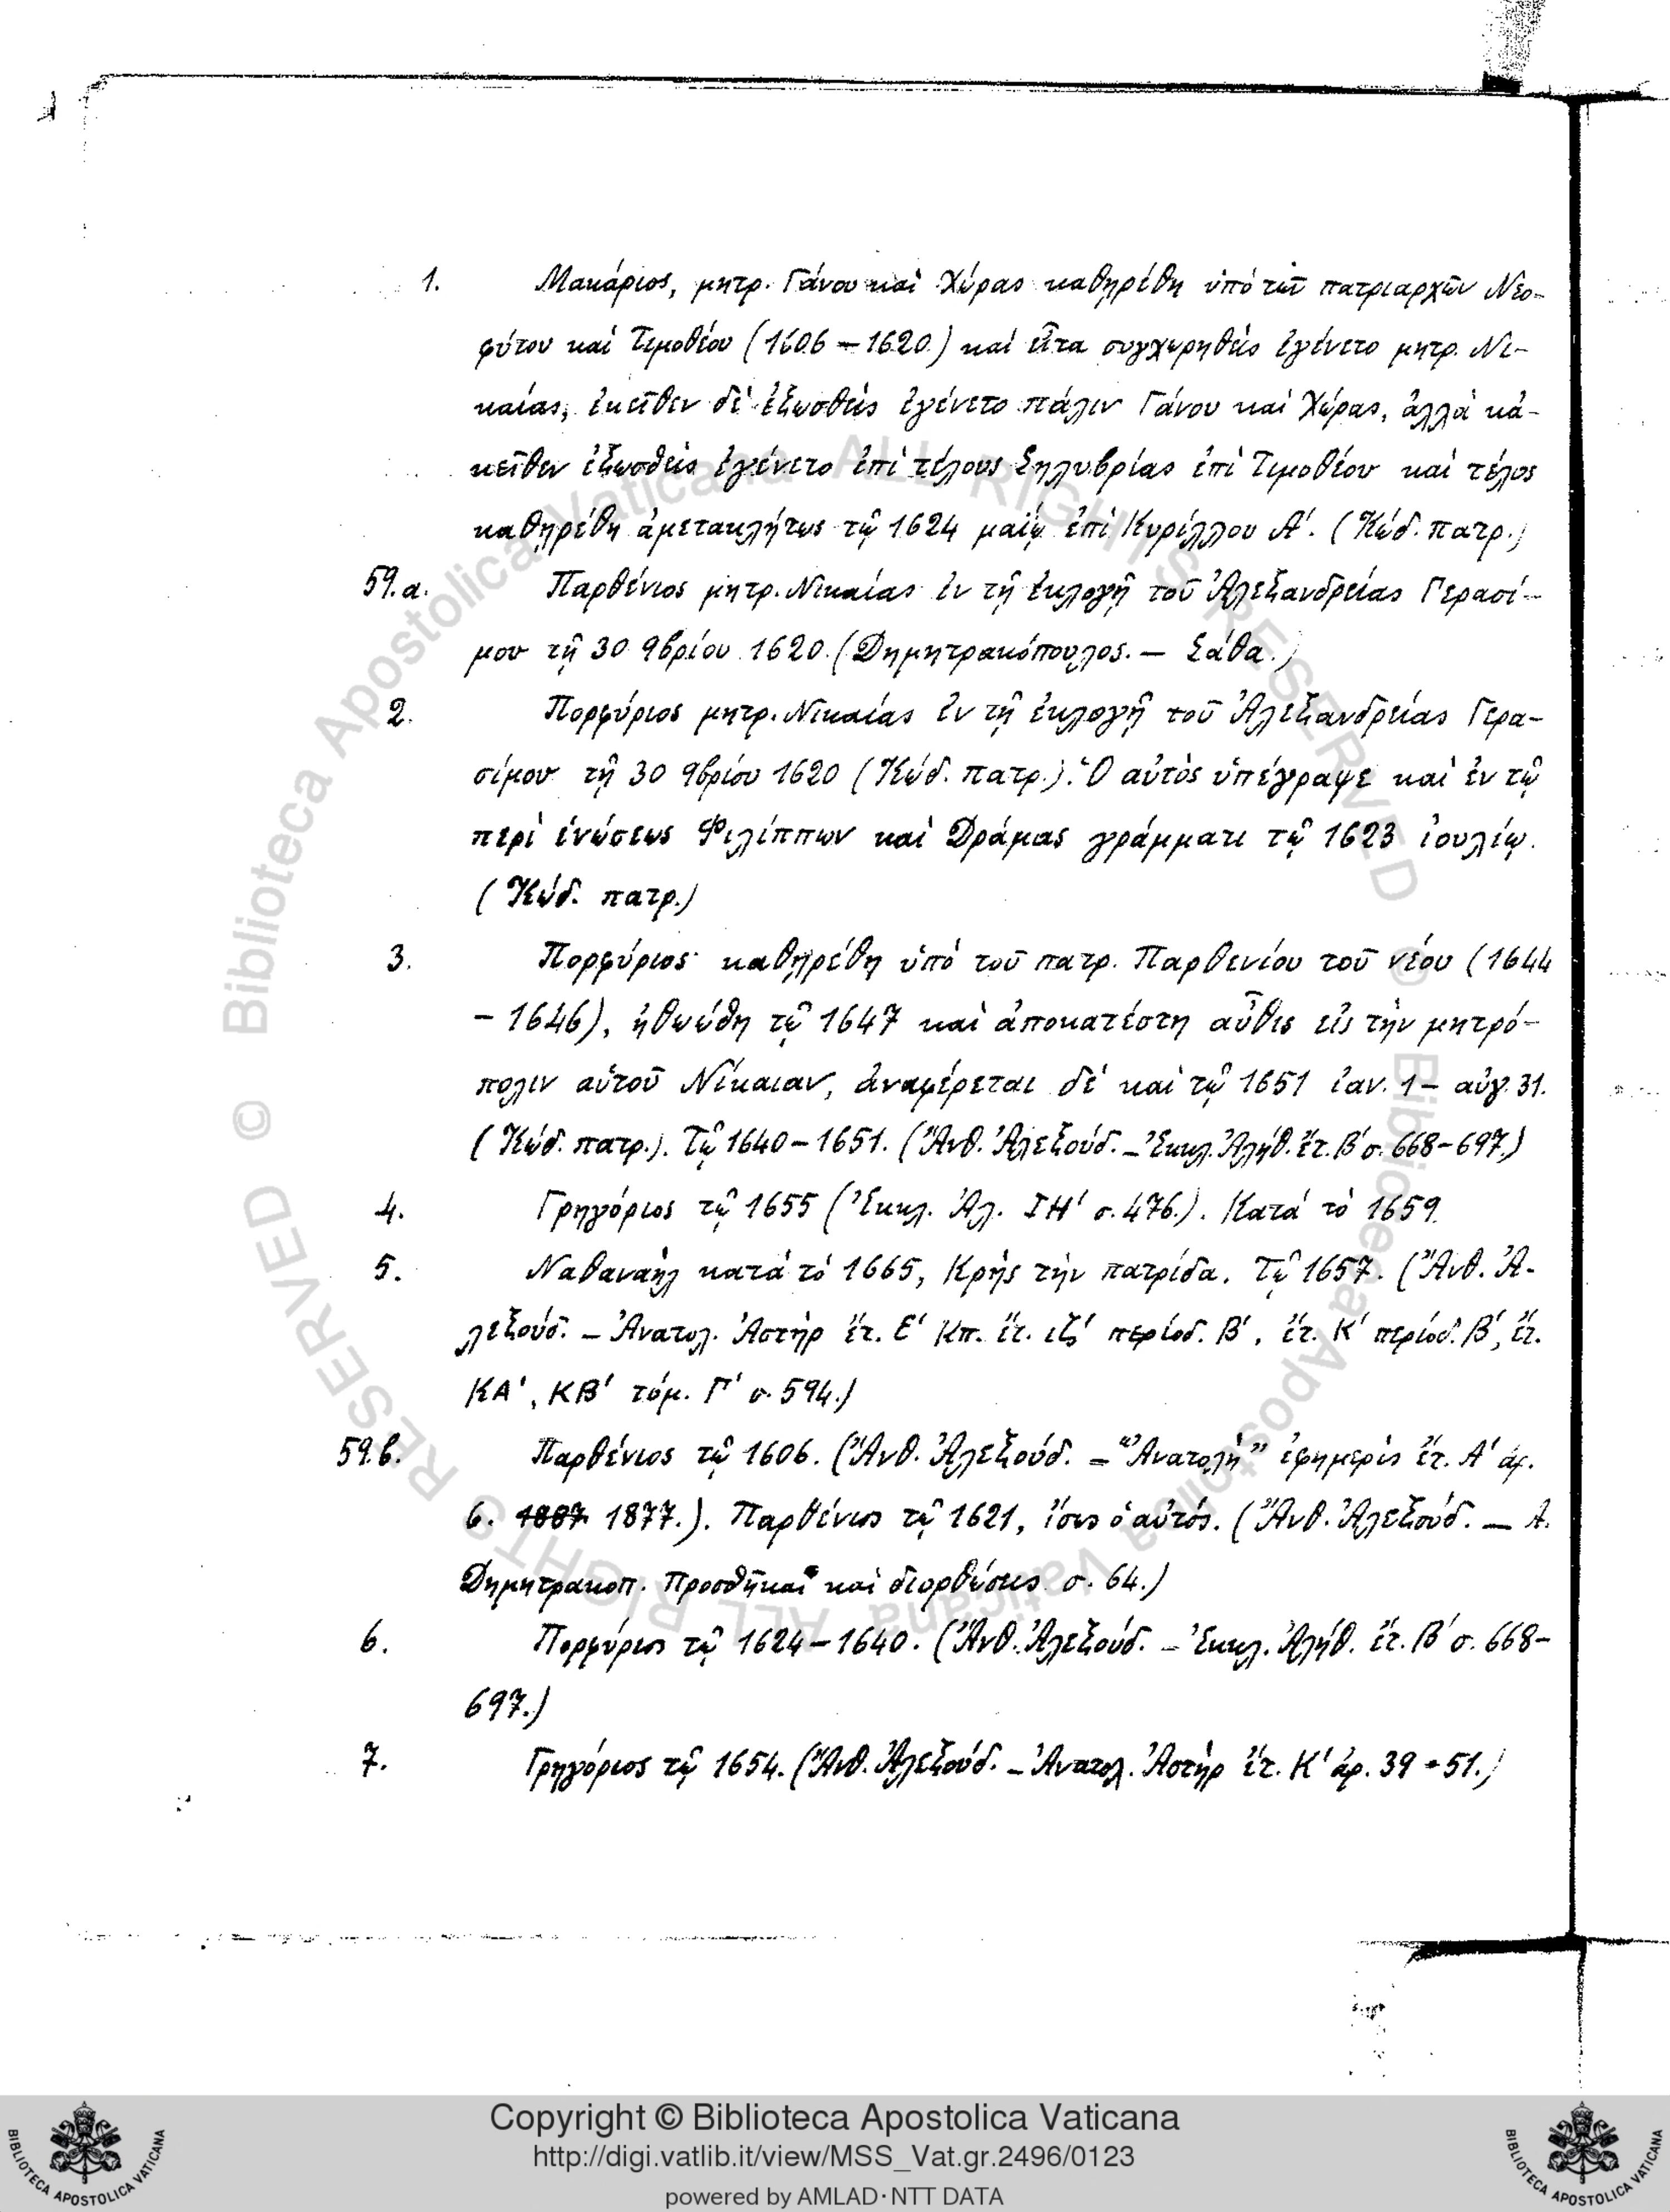 1. Μακάριος, μητρ. Γάνου καὶ Χώρας καθηρέθη ὑπὸ τῶν πατριαρχῶν Νεο-
φύτου καὶ Τιμοθέου (1606 – 1620) καὶ εἶτα συγχωρηθεὶς ἐγένετο μητρ. Νι-
καίας, ἐκεῖθεν δὲ ἐξωσθεὶς ἐγένετο πάλιν Γάνου καὶ Χώρας, ἀλλὰ κἀ-
κεῖθεν ἐξωσθεὶς ἐγένετο ἐπὶ τέλους Σηλυβρίας ἐπὶ Τιμοθέου καὶ τέλος
καθηρέθη ἀμετακλήτως τῷ 1624 μαΐῳ ἐπὶ Κυρίλλου Α'. (Κώδ. πατρ.)
59.α. Παρθένιος μητρ. Νικαίας ἐν τῇ ἐκλογῇ τοῦ Ἀλεξανδρείας Γερασί-
μου τῇ 30 9βρίου 1620. (Δημητρακόπουλος. – Σάθα.)
2. Πορφύριος μητρ. Νικαίας ἐν τῇ ἐκλογῇ τοῦ Ἀλεξανδρείας Γερα-
σίμου τῇ 30 9βρίου 1620 (Κώδ. πατρ.). Ὁ αὐτὸς ὑπέγραψε καὶ ἐν τῷ
περὶ ἑνώσεως Φιλίππων καὶ Δράμας γράμματι τῷ 1623 ἰουλίῳ.
(Κώδ. πατρ.)
3. Πορφύριος καθηρέθη ὑπὸ τοῦ πατρ. Παρθενίου τοῦ νέου (1644
– 1646), ἠθωώθη τῷ 1647 καὶ ἀποκατέστη αὖθις εἰς τὴν μητρό-
πολιν αὑτοῦ Νίκαιαν, ἀναφέρεται δὲ καὶ τῷ 1651 ἰαν. 1 – αὐγ. 31.
(Κώδ. πατρ.). Τῷ 1640 – 1651. (Ἄνθ. Ἀλεξούδ. – Ἐκκλ. Ἀλήθ. ἔτ. Β' σ. 668-697.)
4. Γρηγόριος τῷ 1655 (Ἐκκλ. Ἀλ. ΙΗ' σ. 476.). Κατὰ τὸ 1659.
5. Ναθαναὴλ κατὰ τὸ 1665, Κρὴς τὴν πατρίδα. Τῷ 1657. (Ἄνθ. Ἀ-
λεξούδ. – Ἀνατολ. Ἀστὴρ ἔτ. Ε' Κπ. ἔτ. ιζ' περίοδ. Β', ἔτ. Κ' περίοδ. Β', ἔτ.
ΚΑ', ΚΒ' τόμ. Γ' σ. 594.)
59.β. Παρθένιος τῷ 1606. (Ἄνθ. Ἀλεξούδ. – "Ἀνατολὴ" ἐφημερὶς ἔτ. Α' ἀρ.
6. 1887 1877.). Παρθένιος τῷ 1621, ἴσως ὁ αὐτός. (Ἄνθ. Ἀλεξούδ. – Α.
Δημητρακοπ. Προσθῆκαι καὶ διορθώσεις σ. 64.)
6. Πορφύριος τῷ 1624 – 1640. (Ἄνθ. Ἀλεξούδ. – Ἐκκλ. Ἀλήθ. ἔτ. Β' σ. 668-
697.)
7. Γρηγόριος τῷ 1654. (Ἄνθ. Ἀλεξούδ. – Ἀνατολ. Ἀστὴρ ἔτ. Κ' ἀρ. 39 – 51.)
© Biblioteca Apostolica Vaticana ALL RIGHTS RESERVED © Biblioteca Apostolica Vaticana ALL RIGHTS RESERVED
Copyright © Biblioteca Apostolica Vaticana
http://digi.vatlib.it/view/MSS_Vat.gr.2496/0123
powered by AMLAD·NTT DATA
BIBLIOTECA APOSTOLICA VATICANA
BIBLIOTECA APOSTOLICA VATICANA